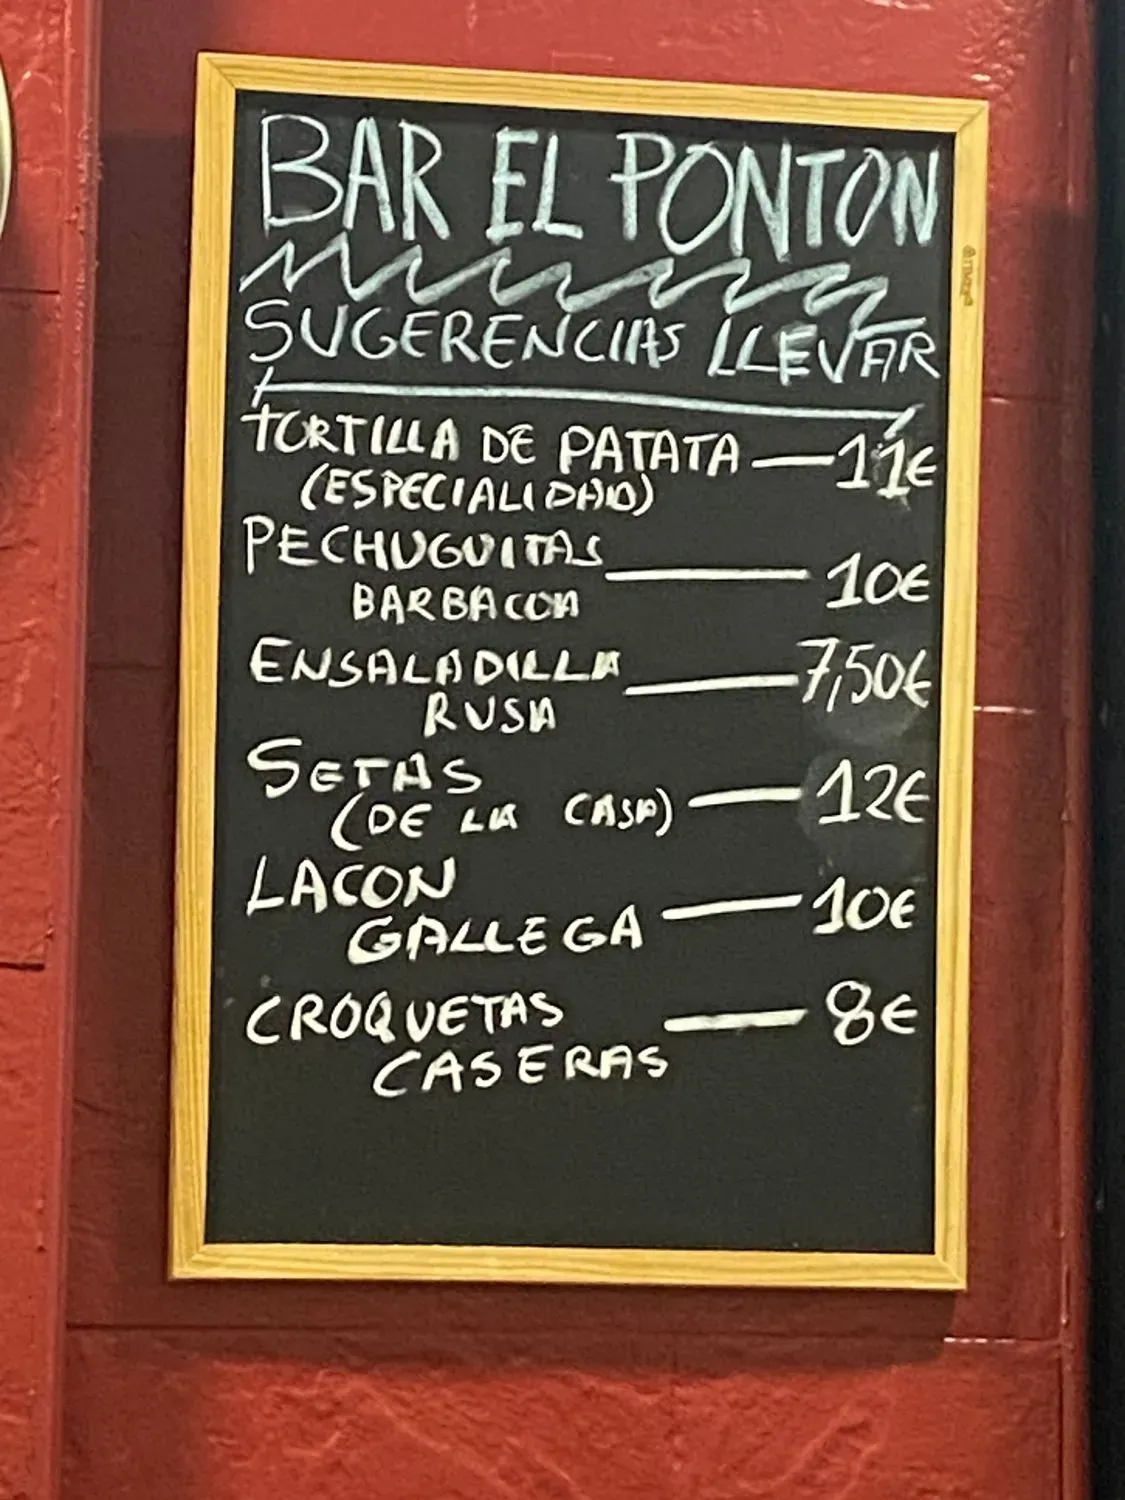 BAR EL PONTON
SUGERENCIAS LLEVAR
TORTILLA DE PATATA — 11€
(ESPECIALIDAD)
PECHUGUITAS
BARBACOA — 10€
ENSALADILLA
RUSA — 7,50€
SETAS
(DE LA CASA) — 12€
LACON
GALLEGA — 10€
CROQUETAS — 8€
CASERAS